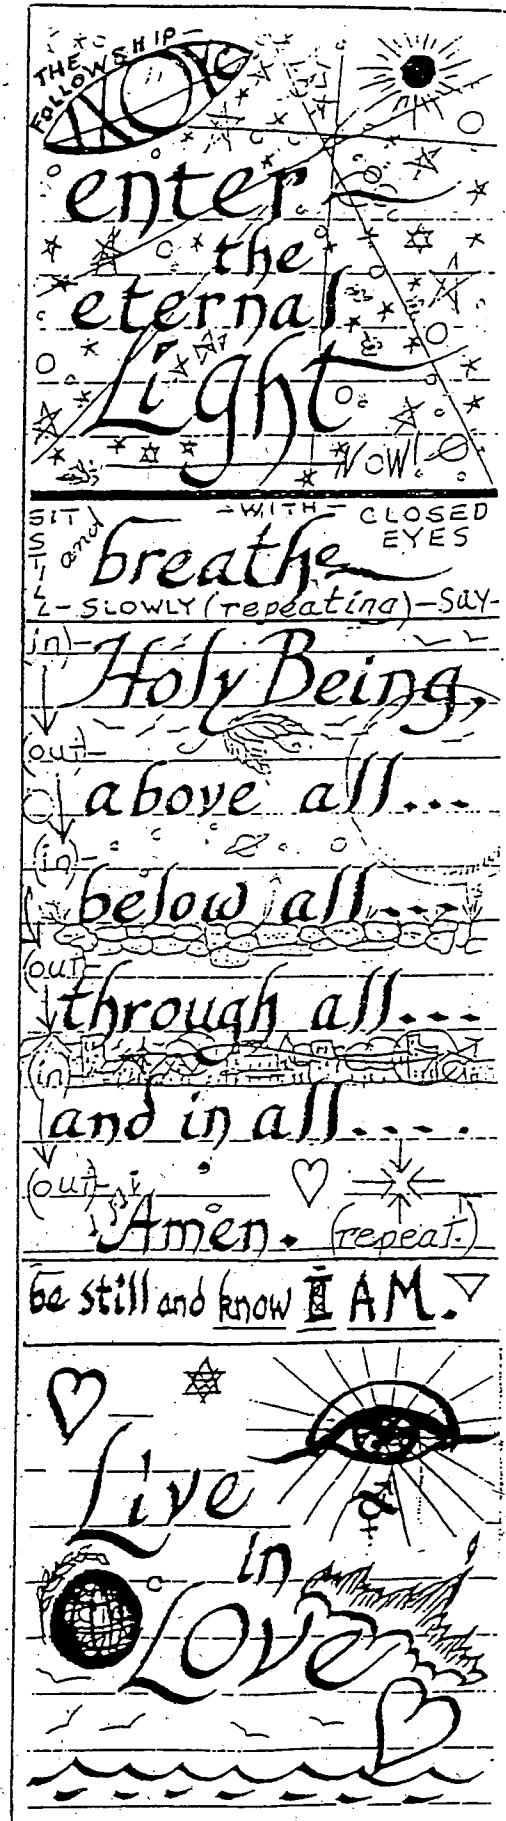 THE
FOLLOWSHIP
ΙΧΘΥC
enter
the
eternal
Light
NOW!
SIT STILL and breathe
-WITH- CLOSED EYES
-SLOWLY (repeating)-SAY-
(in)- Holy Being,
(out)-
above all...
(in)-
below all....
(out)-
through all...
(in)
and in all.....
(out)-
Amen. (repeat.)
be still and know I AM.
Live
in
Love